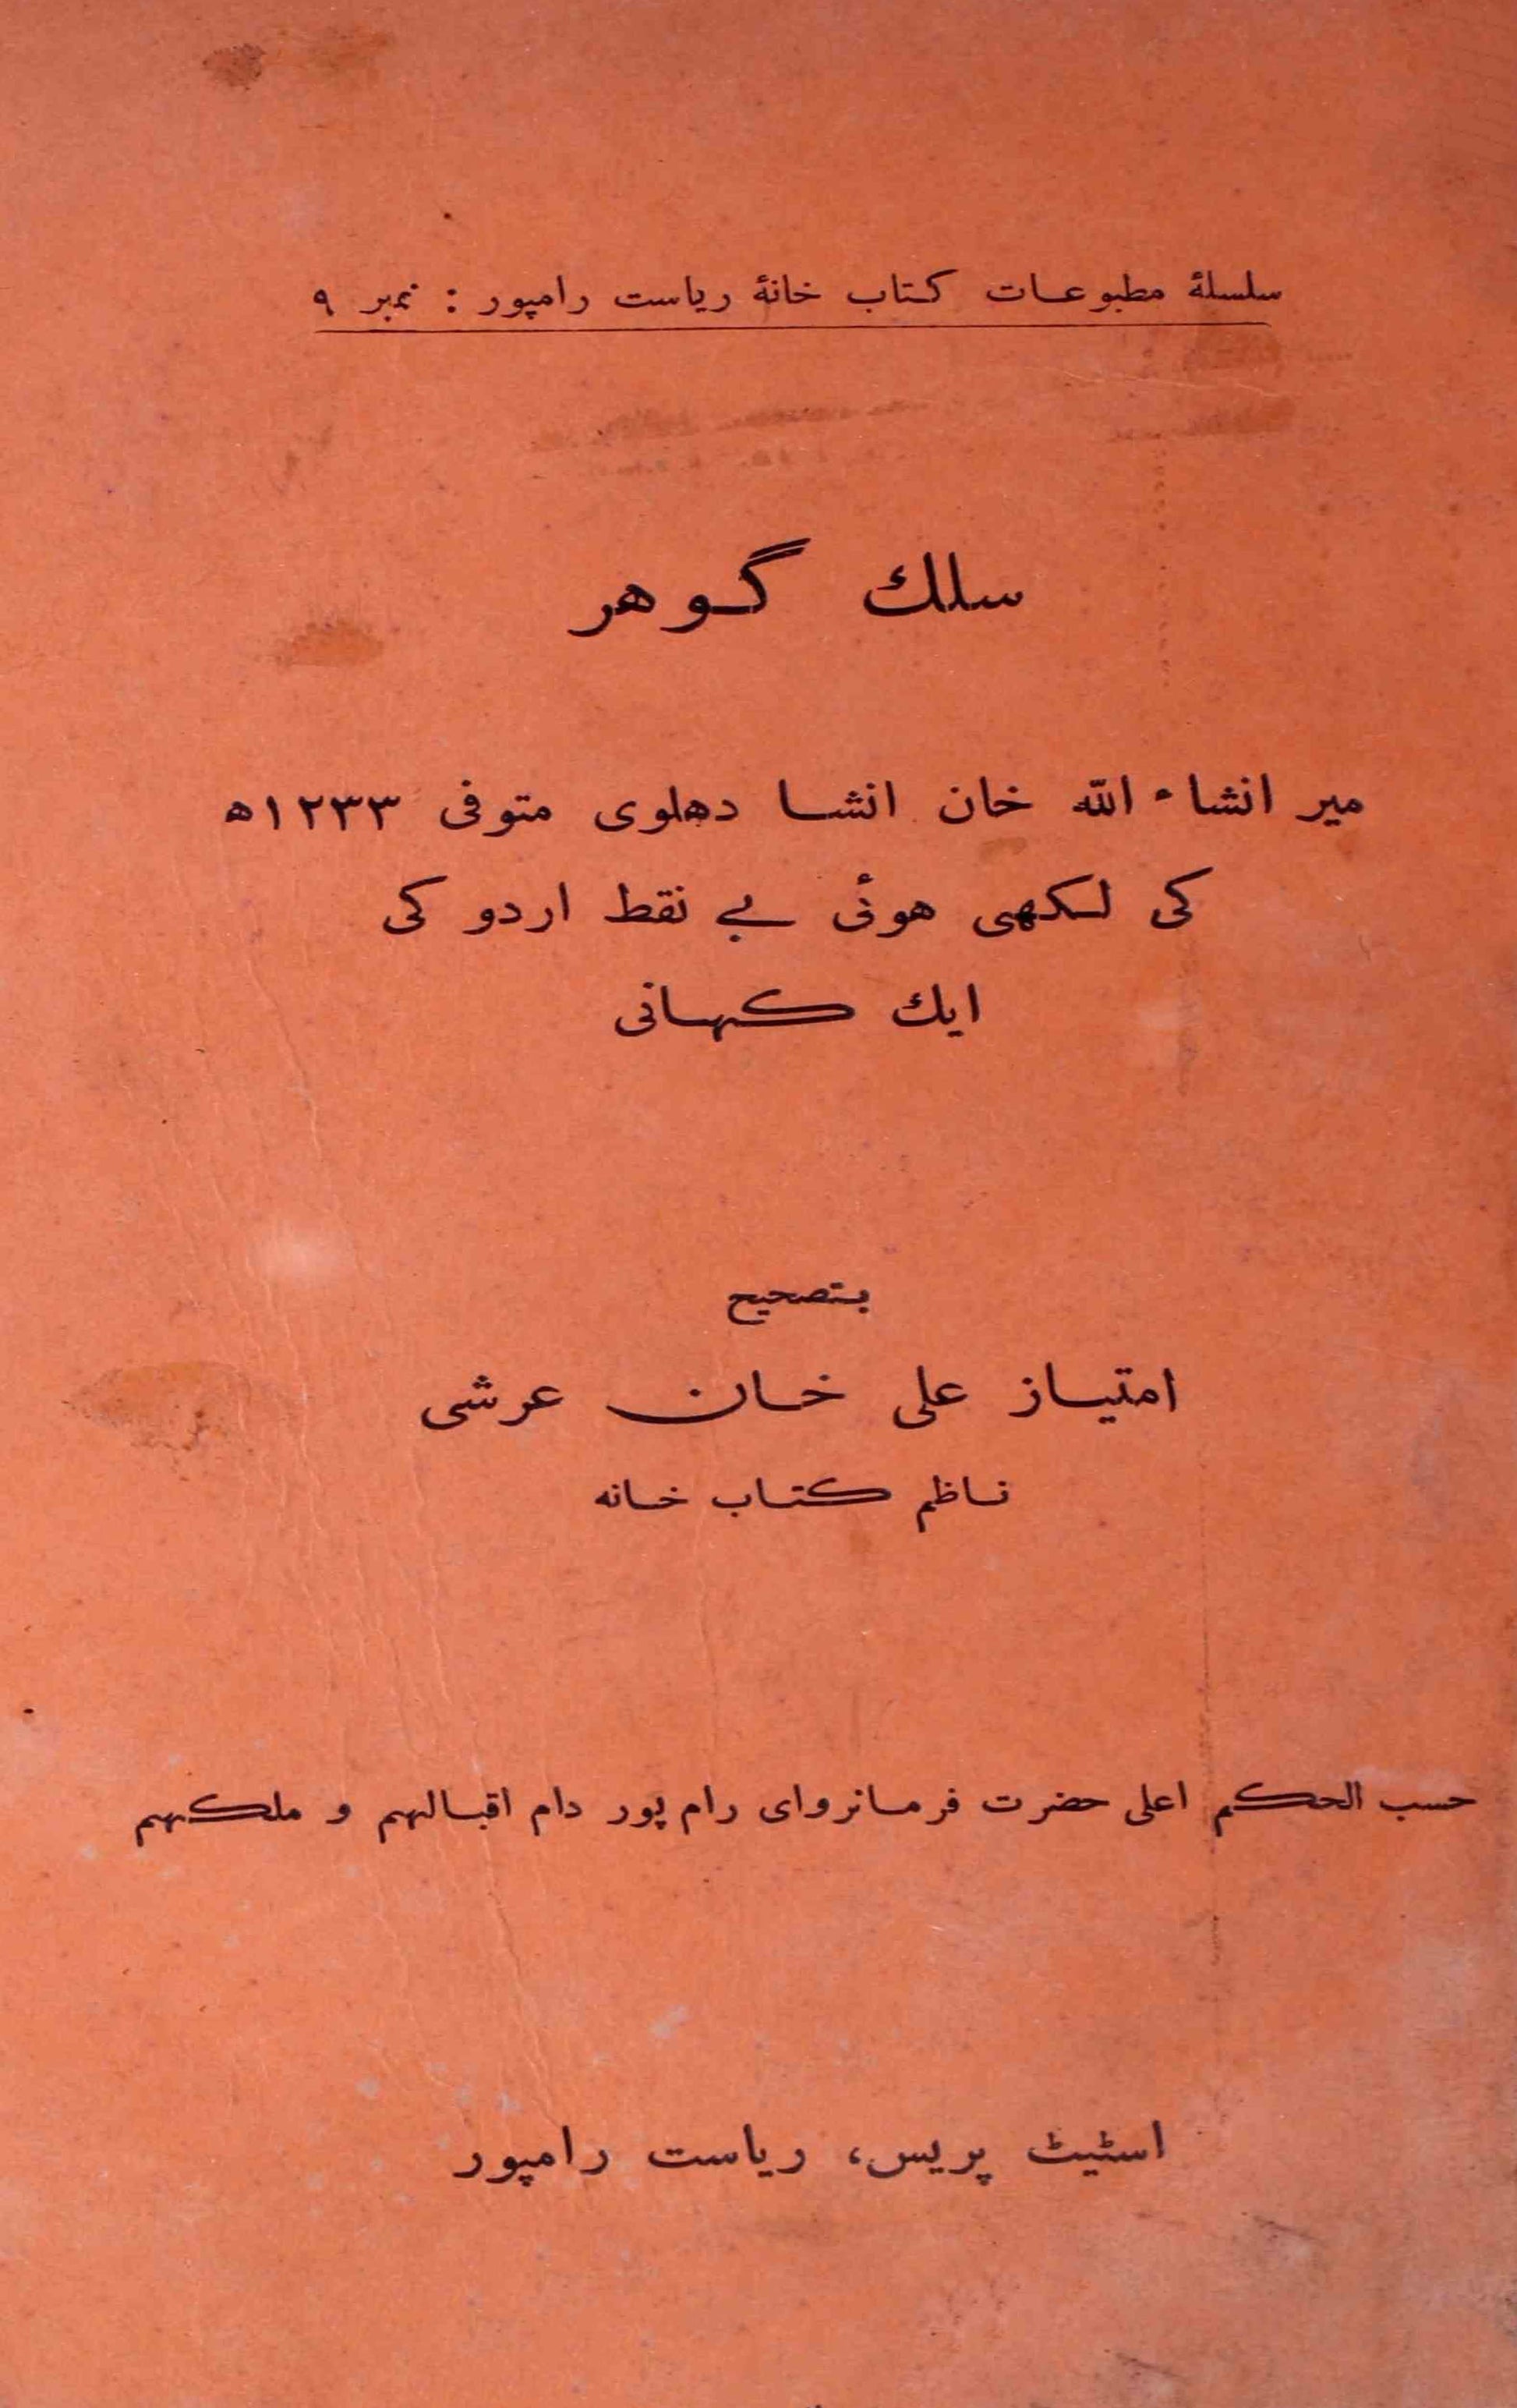 سلسلۂ مطبوعات کتاب خانۂ ریاست رامپور : نمبر ۹
سلك گوهر
میر انشاء الله خان انشا دهلوی متوفی ۱۲۳۳ه
کی لکھی هوئی بے نقط اردو کی
ایك کہانی
بتصحیح
امتیاز علی خان عرشی
ناظم کتاب خانه
حسب الحکم اعلی حضرت فرمانروای رام پور دام اقبالہم و ملکہم
اسٹیٹ پریس، ریاست رامپور